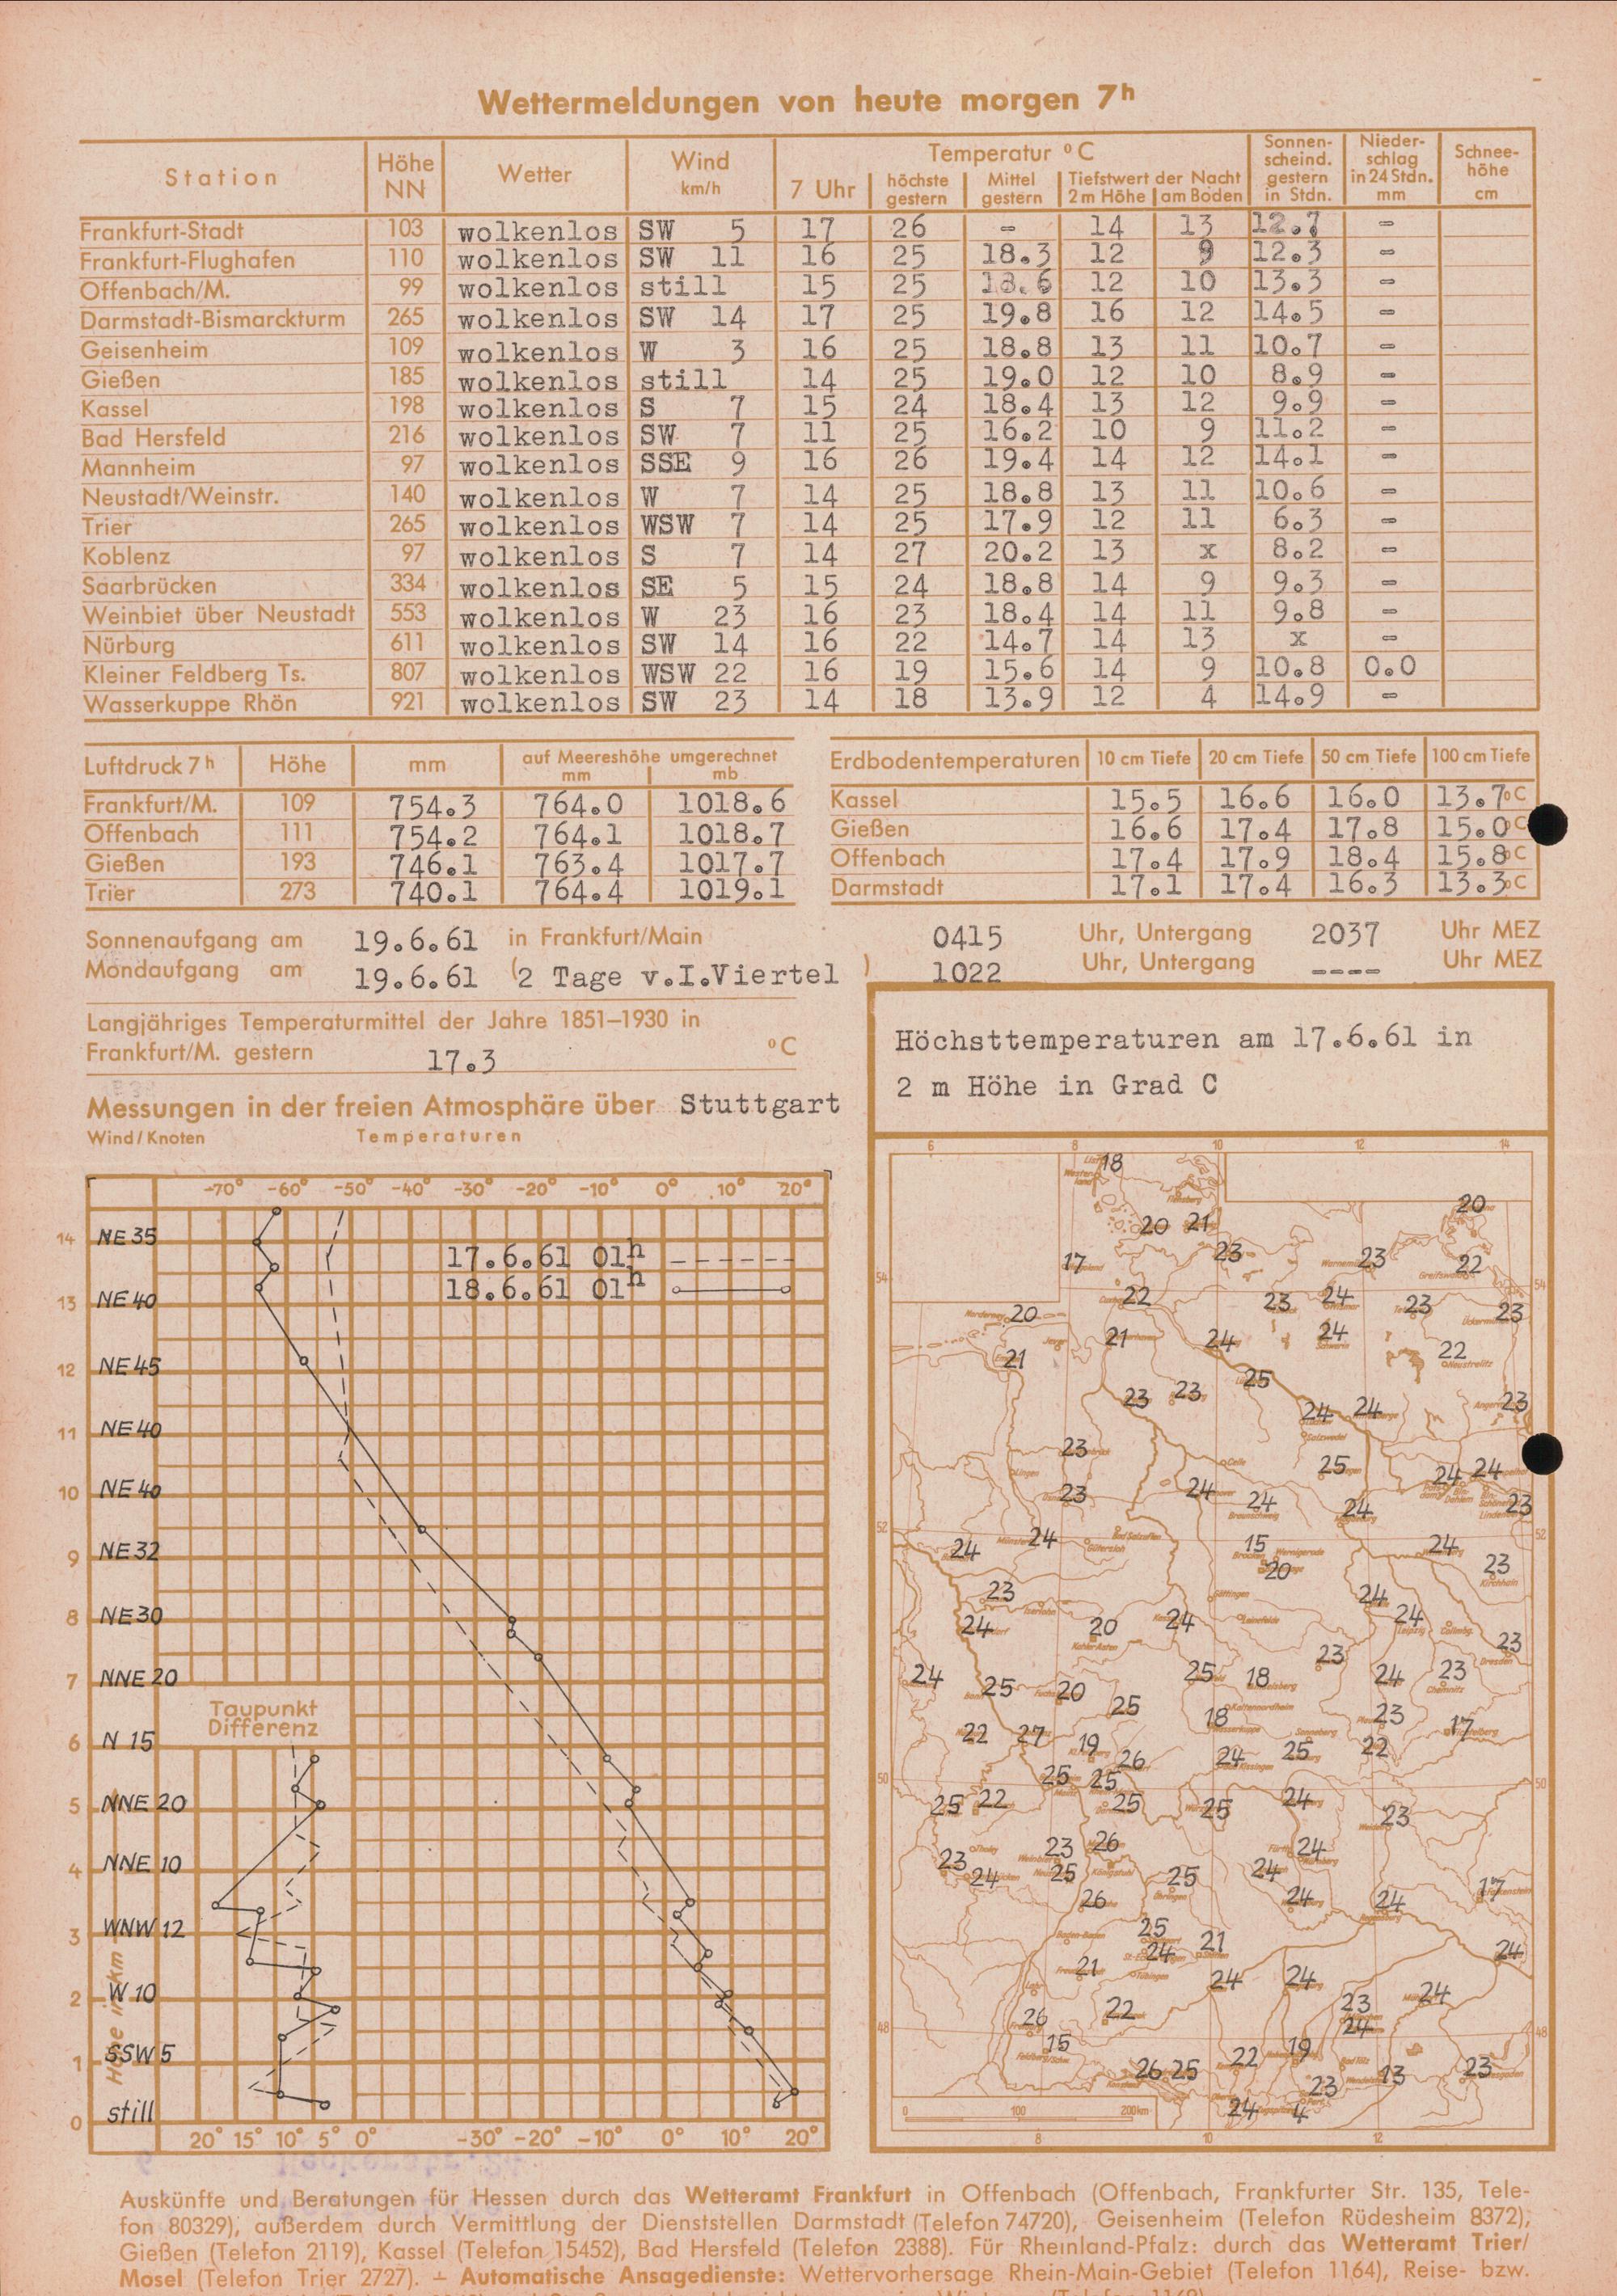 Wettermeldungen von heute morgen 7h
Station Höhe NN Wetter Wind km/h Temperatur °C Sonnenscheind. gestern in Stdn. Niederschlag in 24 Stdn. mm Schneehöhe cm
7 Uhr höchste gestern Mittel gestern Tiefstwert der Nacht 2 m Höhe am Boden
Frankfurt-Stadt 103 wolkenlos SW 5 17 26 - 14 13 12.7 -
Frankfurt-Flughafen 110 wolkenlos SW 11 16 25 18.3 12 9 12.3 -
Offenbach/M. 99 wolkenlos still 15 25 18.6 12 10 13.3 -
Darmstadt-Bismarckturm 265 wolkenlos SW 14 17 25 19.8 16 12 14.5 -
Geisenheim 109 wolkenlos W 3 16 25 18.8 13 11 10.7 -
Gießen 185 wolkenlos still 14 25 19.0 12 10 8.9 -
Kassel 198 wolkenlos S 7 15 24 18.4 13 12 9.9 -
Bad Hersfeld 216 wolkenlos SW 7 11 25 16.2 10 9 11.2 -
Mannheim 97 wolkenlos SSE 9 16 26 19.4 14 12 14.1 -
Neustadt/Weinstr. 140 wolkenlos W 7 14 25 18.8 13 11 10.6 -
Trier 265 wolkenlos WSW 7 14 25 17.9 12 11 6.3 -
Koblenz 97 wolkenlos S 7 14 27 20.2 13 x 8.2 -
Saarbrücken 334 wolkenlos SE 5 15 24 18.8 14 9 9.3 -
Weinbiet über Neustadt 553 wolkenlos W 23 16 23 18.4 14 11 9.8 -
Nürburg 611 wolkenlos SW 14 16 22 14.7 14 13 x -
Kleiner Feldberg Ts. 807 wolkenlos WSW 22 16 19 15.6 14 9 10.8 0.0
Wasserkuppe Rhön 921 wolkenlos SW 23 14 18 13.9 12 4 14.9 -
Luftdruck 7h Höhe mm auf Meereshöhe umgerechnet mm mb
Frankfurt/M. 109 754.3 764.0 1018.6
Offenbach 111 754.2 764.1 1018.7
Gießen 193 746.1 763.4 1017.7
Trier 273 740.1 764.4 1019.1
Erdbodentemperaturen 10 cm Tiefe 20 cm Tiefe 50 cm Tiefe 100 cm Tiefe
Kassel 15.5 16.6 16.0 13.7 °C
Gießen 16.6 17.4 17.8 15.0 °C
Offenbach 17.4 17.9 18.4 15.8 °C
Darmstadt 17.1 17.4 16.3 13.3 °C
Sonnenaufgang am 19.6.61 in Frankfurt/Main 0415 Uhr, Untergang 2037 Uhr MEZ
Mondaufgang am 19.6.61 (2 Tage v.I.Viertel) 1022 Uhr, Untergang ---- Uhr MEZ
Langjähriges Temperaturmittel der Jahre 1851–1930 in
Frankfurt/M. gestern 17.3 °C
Messungen in der freien Atmosphäre über Stuttgart
Wind/Knoten Temperaturen
-70° -60° -50° -40° -30° -20° -10° 0° 10° 20°
14 NE 35
17.6.61 01h
18.6.61 01h
13 NE 40
12 NE 45
11 NE 40
10 NE 40
9 NE 32
8 NE 30
7 NNE 20
Taupunkt
Differenz
6 N 15
5 NNE 20
4 NNE 10
3 WNW 12
2 W 10
1 SSW 5
0 still
Höhe in km
20° 15° 10° 5° 0° -30° -20° -10° 0° 10° 20°
Höchsttemperaturen am 17.6.61 in
2 m Höhe in Grad C
6 8 10 12 14
18
20
20 21
17 23 23 22
54 54
22 23 24 23 23
20
21 24 24
21 22
25
23 23 24 24 23
23 25 24 24
23 24 24 24 23
52 52
24 24 15 24
20 23
23 24
24 20 24 24
23 23
24 25 18 24 23
25 20 25
18 23 17
22 27 19 26 24 25 22
50 50
25 25
25 22 25 25 24 23
23 26 24
23 24 25 25 24
26 24 24 17
25 24 21 24
21 24 24
26 22 23 24
48 24 48
15 19
26 25 22 13 23
23
24 4
0 100 200km
8 10 12
Auskünfte und Beratungen für Hessen durch das Wetteramt Frankfurt in Offenbach (Offenbach, Frankfurter Str. 135, Tele-
fon 80329), außerdem durch Vermittlung der Dienststellen Darmstadt (Telefon 74720), Geisenheim (Telefon Rüdesheim 8372),
Gießen (Telefon 2119), Kassel (Telefon 15452), Bad Hersfeld (Telefon 2388). Für Rheinland-Pfalz: durch das Wetteramt Trier/
Mosel (Telefon Trier 2727). — Automatische Ansagedienste: Wettervorhersage Rhein-Main-Gebiet (Telefon 1164), Reise- bzw.